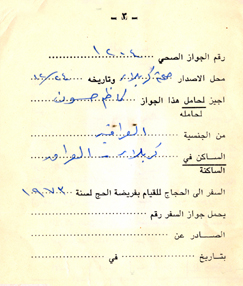 - ٣ -
رقم الجواز الصحي ١٢٠٠٤
محل الاصدار صحة كربلاء وتاريخه
اجيز لحامل هذا الجواز كاظم حسون
لحامله
من الجنسية العراقية
الساكن في كربلاء - العراق
الساكنة
السفر الى الحجاج للقيام بفريضة الحج لسنة ١٩٧٣
يحمل جواز السفر رقم
الصادر عن
بتاريخ في